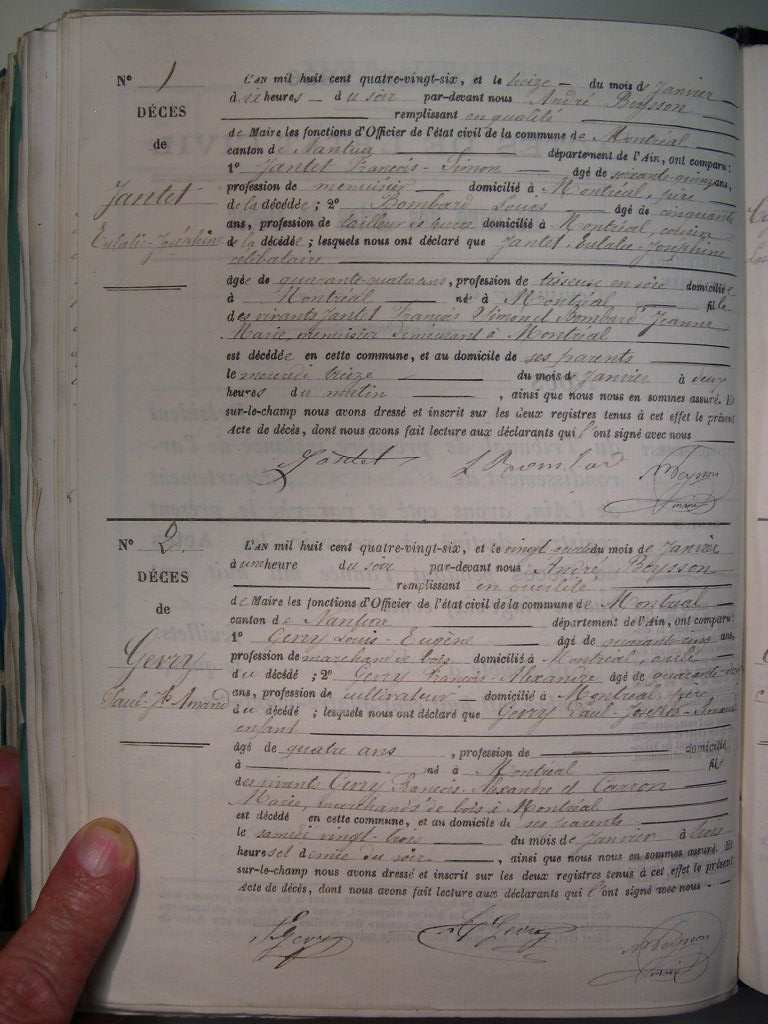 N° 1
DÉCES
de
Jantet
Eulalie-Joséphine
L'AN mil huit cent quatre-vingt-six, et le treize — du mois de Janvier
à six heures — du soir par-devant nous André Beysson
remplissant en qualité
de Maire les fonctions d'Officier de l'état civil de la commune de Montréal
canton de Nantua département de l'Ain, ont comparu:
1° Jantet François Simon âgé de soixante-quinze ans,
profession de menuisier domicilié à Montréal, père
de la décédée; 2° Bombard âgé de cinquante
ans, profession de tailleur de domicilié à Montréal, cousin
de la décédée; lesquels nous ont déclaré que Jantet Eulalie-Joséphine
célibataire
âgée de quarante-quatre ans, profession de tisseuse en soie domiciliée
à Montréal née à Montréal fille
des vivants Jantet François Simon et Bombard Jeanne
Marie, menuisier demeurant à Montréal
est décédée en cette commune, et au domicile de ses parents
le mercredi treize du mois de Janvier à deux
heures du matin, ainsi que nous nous en sommes assuré. Et
sur-le-champ nous avons dressé et inscrit sur les deux registres tenus à cet effet le présent
Acte de décès, dont nous avons fait lecture aux déclarants qui l'ont signé avec nous
Jantet L Bombard Beysson
N° 2
DÉCES
de
Gevry
Paul-Jh Amand
L'AN mil huit cent quatre-vingt-six, et le vingt quatre du mois de Janvier
à une heure du soir par-devant nous André Beysson
remplissant en qualité
de Maire les fonctions d'Officier de l'état civil de la commune de Montréal
canton de Nantua département de l'Ain, ont comparu:
1° Gevry Louis-Eugène âgé de quarante-cinq ans,
profession de marchand de bois domicilié à Montréal, oncle
du décédé; 2° Gevry François-Alexandre âgé de quarante-
ans, profession de cultivateur domicilié à Montréal, père
du décédé; lesquels nous ont déclaré que Gevry Paul-Joseph-Amand
enfant
âgé de quatre ans, profession de — domicilié
à — né à Montréal fils
des vivants Gevry François-Alexandre et Carron
Marie, marchands de bois à Montréal
est décédé en cette commune, et au domicile de ses parents
le samedi vingt-trois du mois de Janvier à trois
heures et demie du soir, ainsi que nous nous en sommes assuré. Et
sur-le-champ nous avons dressé et inscrit sur les deux registres tenus à cet effet le présent
Acte de décès, dont nous avons fait lecture aux déclarants qui l'ont signé avec nous
Gevry Gevry Beysson